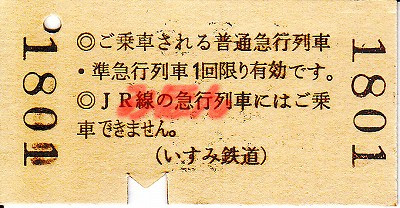 ◎ご乗車される普通急行列車
・準急行列車1回限り有効です。
◎JR線の急行列車にはご乗
車できません。
(いすみ鉄道)
1801
1801